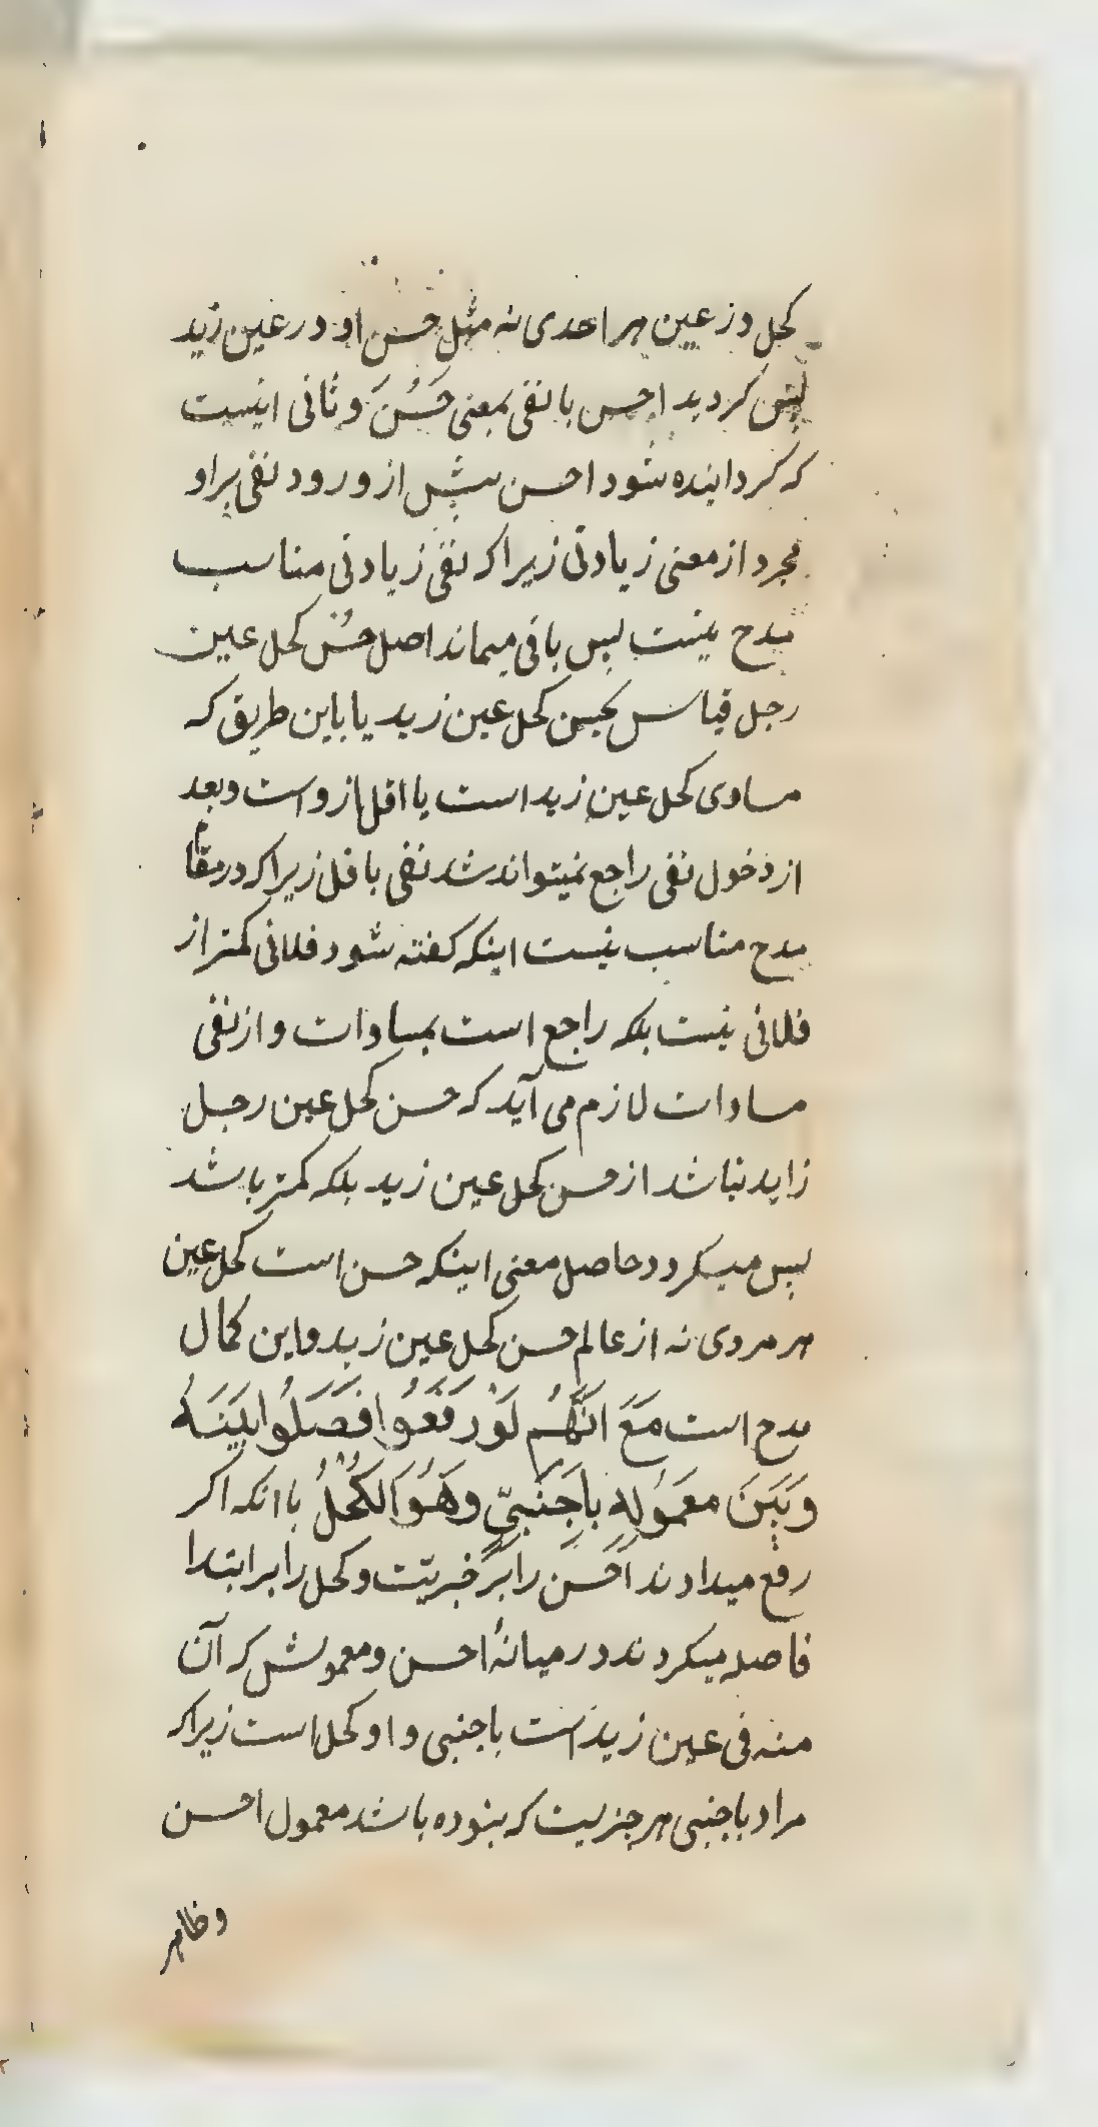 کحل در عین هر احدی نه مثل حسن او در عین زید
پس کردید احسن با نفی بمعنی حَسُنَ و ثانی اینست
که کردانیده شود احسن پیش از ورود نفی براو
مجرد از معنی زیادتی زیرا که نفی زیادتی مناسب
مدح نیست پس باقی میماند اصل حسن کحل عین
رجل قیاس بحسن کحل عین زید یا باین طریق که
مساوی کحل عین زید است یا اقل از و است و بعد
از دخول نفی راجع نمیتواند شد نفی باقل زیرا که در مقام
مدح مناسب نیست اینکه کفته شود فلانی کمتر از
فلانی نیست بلکه راجع است بمساوات و از نفی
مساوات لازم می آید که حسن کحل عین رجل
زاید نباشد از حسن کحل عین زید بلکه کمتر باشد
پس میکردد حاصل معنی اینکه حسن است کحل عین
هر مردی نه از عالم حسن کحل عین زید و این کمال
مدح است مَعَ اَنَّهُم لَوْ رَفَعُوا فَصَلُوا بَیْنَهُ
وَبَیَنَ مَعمُولِهِ بِاَجنَبیٍّ وهَوُ الکُحْلُ با انکه اکر
رفع میدادند اَحسن را بر خبریّت و کحل را بر ابتدا
فاصله میکردند در میانهٔ احسن و معمولش که آن
منه فی عین زید است باجنبی و او کحل است زیرا که
مراد باجنبی هر چیزیست که نبوده باشد معمول احسن
وظاهر